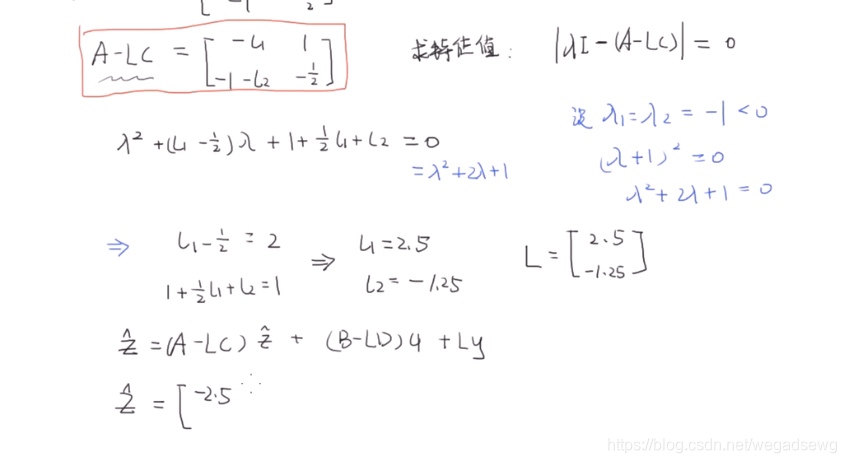 A-LC = [ -L1 1
-1-L2 -1/2 ]
求特征值: |λI-(A-LC)| = 0
λ² + (L1 - 1/2)λ + 1 + 1/2 L1 + L2 = 0
= λ² + 2λ + 1
设 λ1 = λ2 = -1 < 0
(λ+1)² = 0
λ² + 2λ + 1 = 0
⇒ L1 - 1/2 = 2 ⇒ L1 = 2.5
1 + 1/2 L1 + L2 = 1 L2 = -1.25
L = [ 2.5
-1.25 ]
ẑ = (A-LC) ẑ + (B-LD) u + Ly
ẑ = [ -2.5
https://blog.csdn.net/wegadsewg